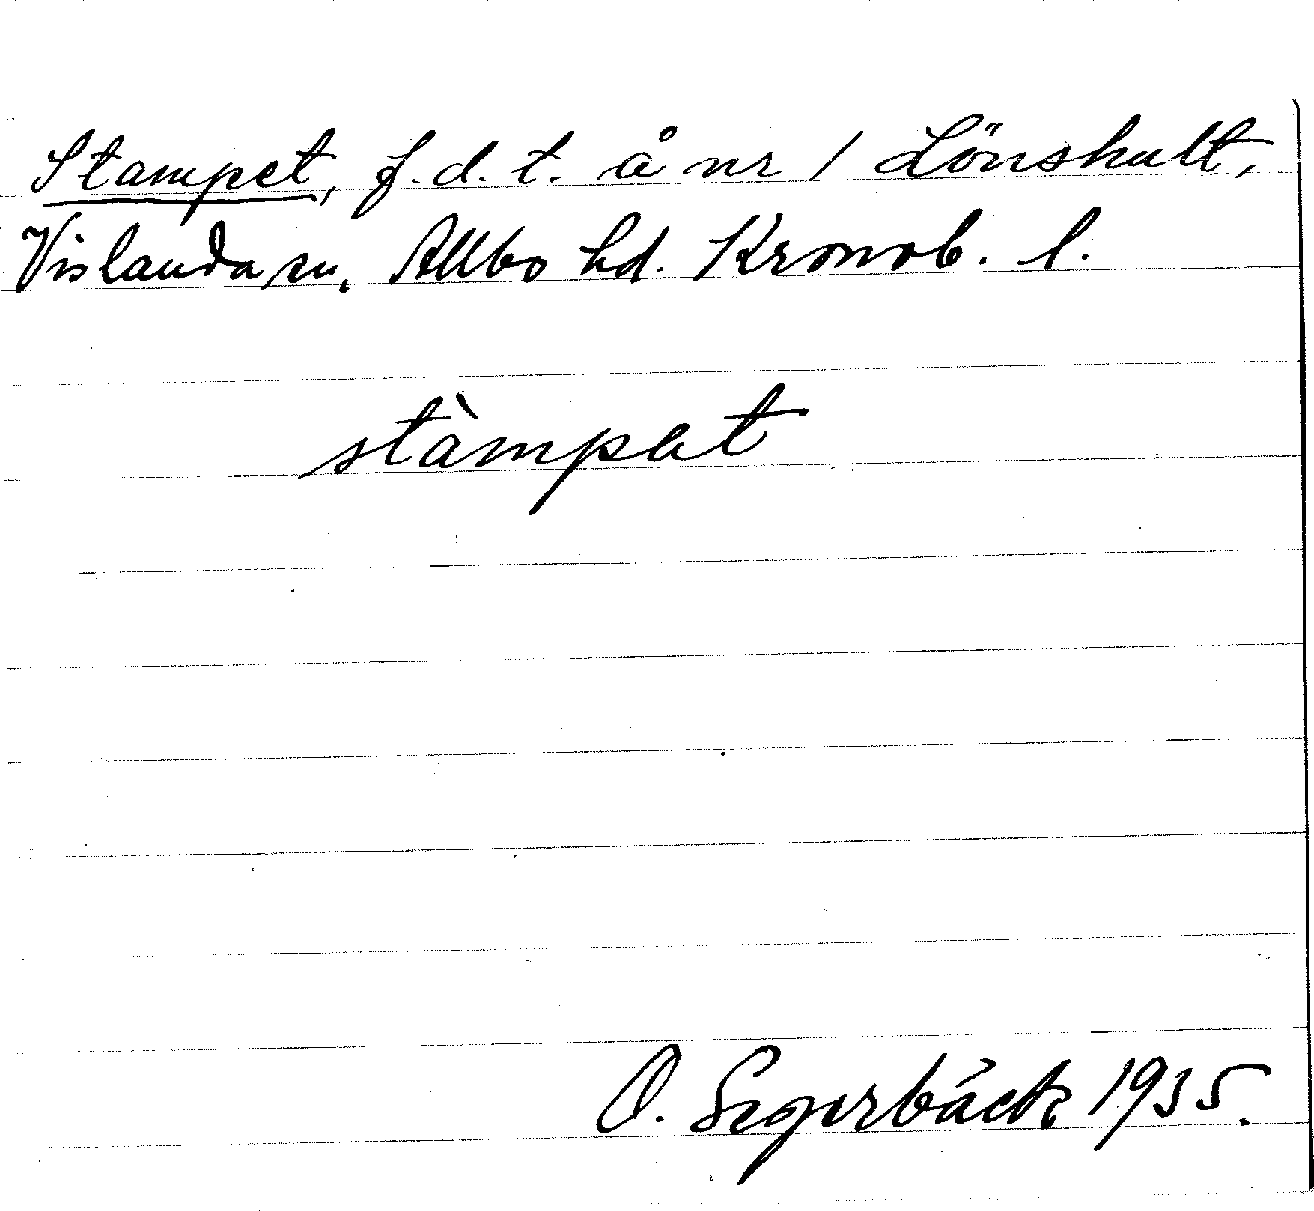 Stampet, f.d.t. å nr 1 Lönshult,
Vislanda sn. Allbo hd. Kronob. l.
stàmpat
O. Segerbäck 1935.